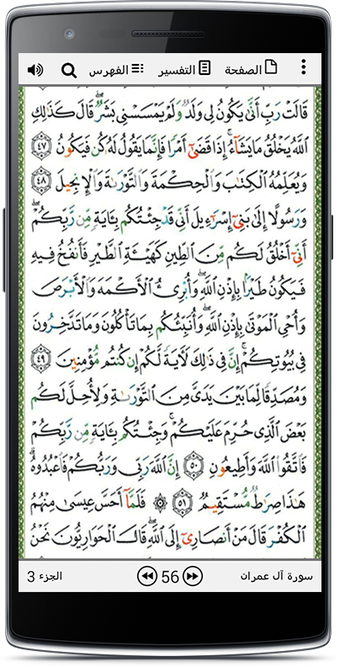 الصفحة التفسير الفهرس
قَالَتْ رَبِّ أَنَّىٰ يَكُونُ لِي وَلَدٌ وَلَمْ يَمْسَسْنِي بَشَرٌ ۖ قَالَ كَذَٰلِكِ
ٱللَّهُ يَخْلُقُ مَا يَشَآءُ ۚ إِذَا قَضَىٰٓ أَمْرًا فَإِنَّمَا يَقُولُ لَهُۥ كُن فَيَكُونُ ٤٧
وَيُعَلِّمُهُ ٱلْكِتَٰبَ وَٱلْحِكْمَةَ وَٱلتَّوْرَىٰةَ وَٱلْإِنجِيلَ ٤٨
وَرَسُولًا إِلَىٰ بَنِىٓ إِسْرَٰٓءِيلَ أَنِّى قَدْ جِئْتُكُم بِـَٔايَةٍ مِّن رَّبِّكُمْ ۖ
أَنِّىٓ أَخْلُقُ لَكُم مِّنَ ٱلطِّينِ كَهَيْـَٔةِ ٱلطَّيْرِ فَأَنفُخُ فِيهِ
فَيَكُونُ طَيْرًۢا بِإِذْنِ ٱللَّهِ ۖ وَأُبْرِئُ ٱلْأَكْمَهَ وَٱلْأَبْرَصَ
وَأُحْىِ ٱلْمَوْتَىٰ بِإِذْنِ ٱللَّهِ ۖ وَأُنَبِّئُكُم بِمَا تَأْكُلُونَ وَمَا تَدَّخِرُونَ
فِى بُيُوتِكُمْ ۚ إِنَّ فِى ذَٰلِكَ لَـَٔايَةً لَّكُمْ إِن كُنتُم مُّؤْمِنِينَ ٤٩
وَمُصَدِّقًا لِّمَا بَيْنَ يَدَىَّ مِنَ ٱلتَّوْرَىٰةِ وَلِأُحِلَّ لَكُم
بَعْضَ ٱلَّذِى حُرِّمَ عَلَيْكُمْ ۚ وَجِئْتُكُم بِـَٔايَةٍ مِّن رَّبِّكُمْ
فَٱتَّقُوا۟ ٱللَّهَ وَأَطِيعُونِ ٥٠ إِنَّ ٱللَّهَ رَبِّى وَرَبُّكُمْ فَٱعْبُدُوهُ ۗ
هَٰذَا صِرَٰطٌ مُّسْتَقِيمٌ ٥١ ۞ فَلَمَّآ أَحَسَّ عِيسَىٰ مِنْهُمُ
ٱلْكُفْرَ قَالَ مَنْ أَنصَارِىٓ إِلَى ٱللَّهِ ۖ قَالَ ٱلْحَوَارِيُّونَ نَحْنُ
سورة آل عمران 56 الجزء 3